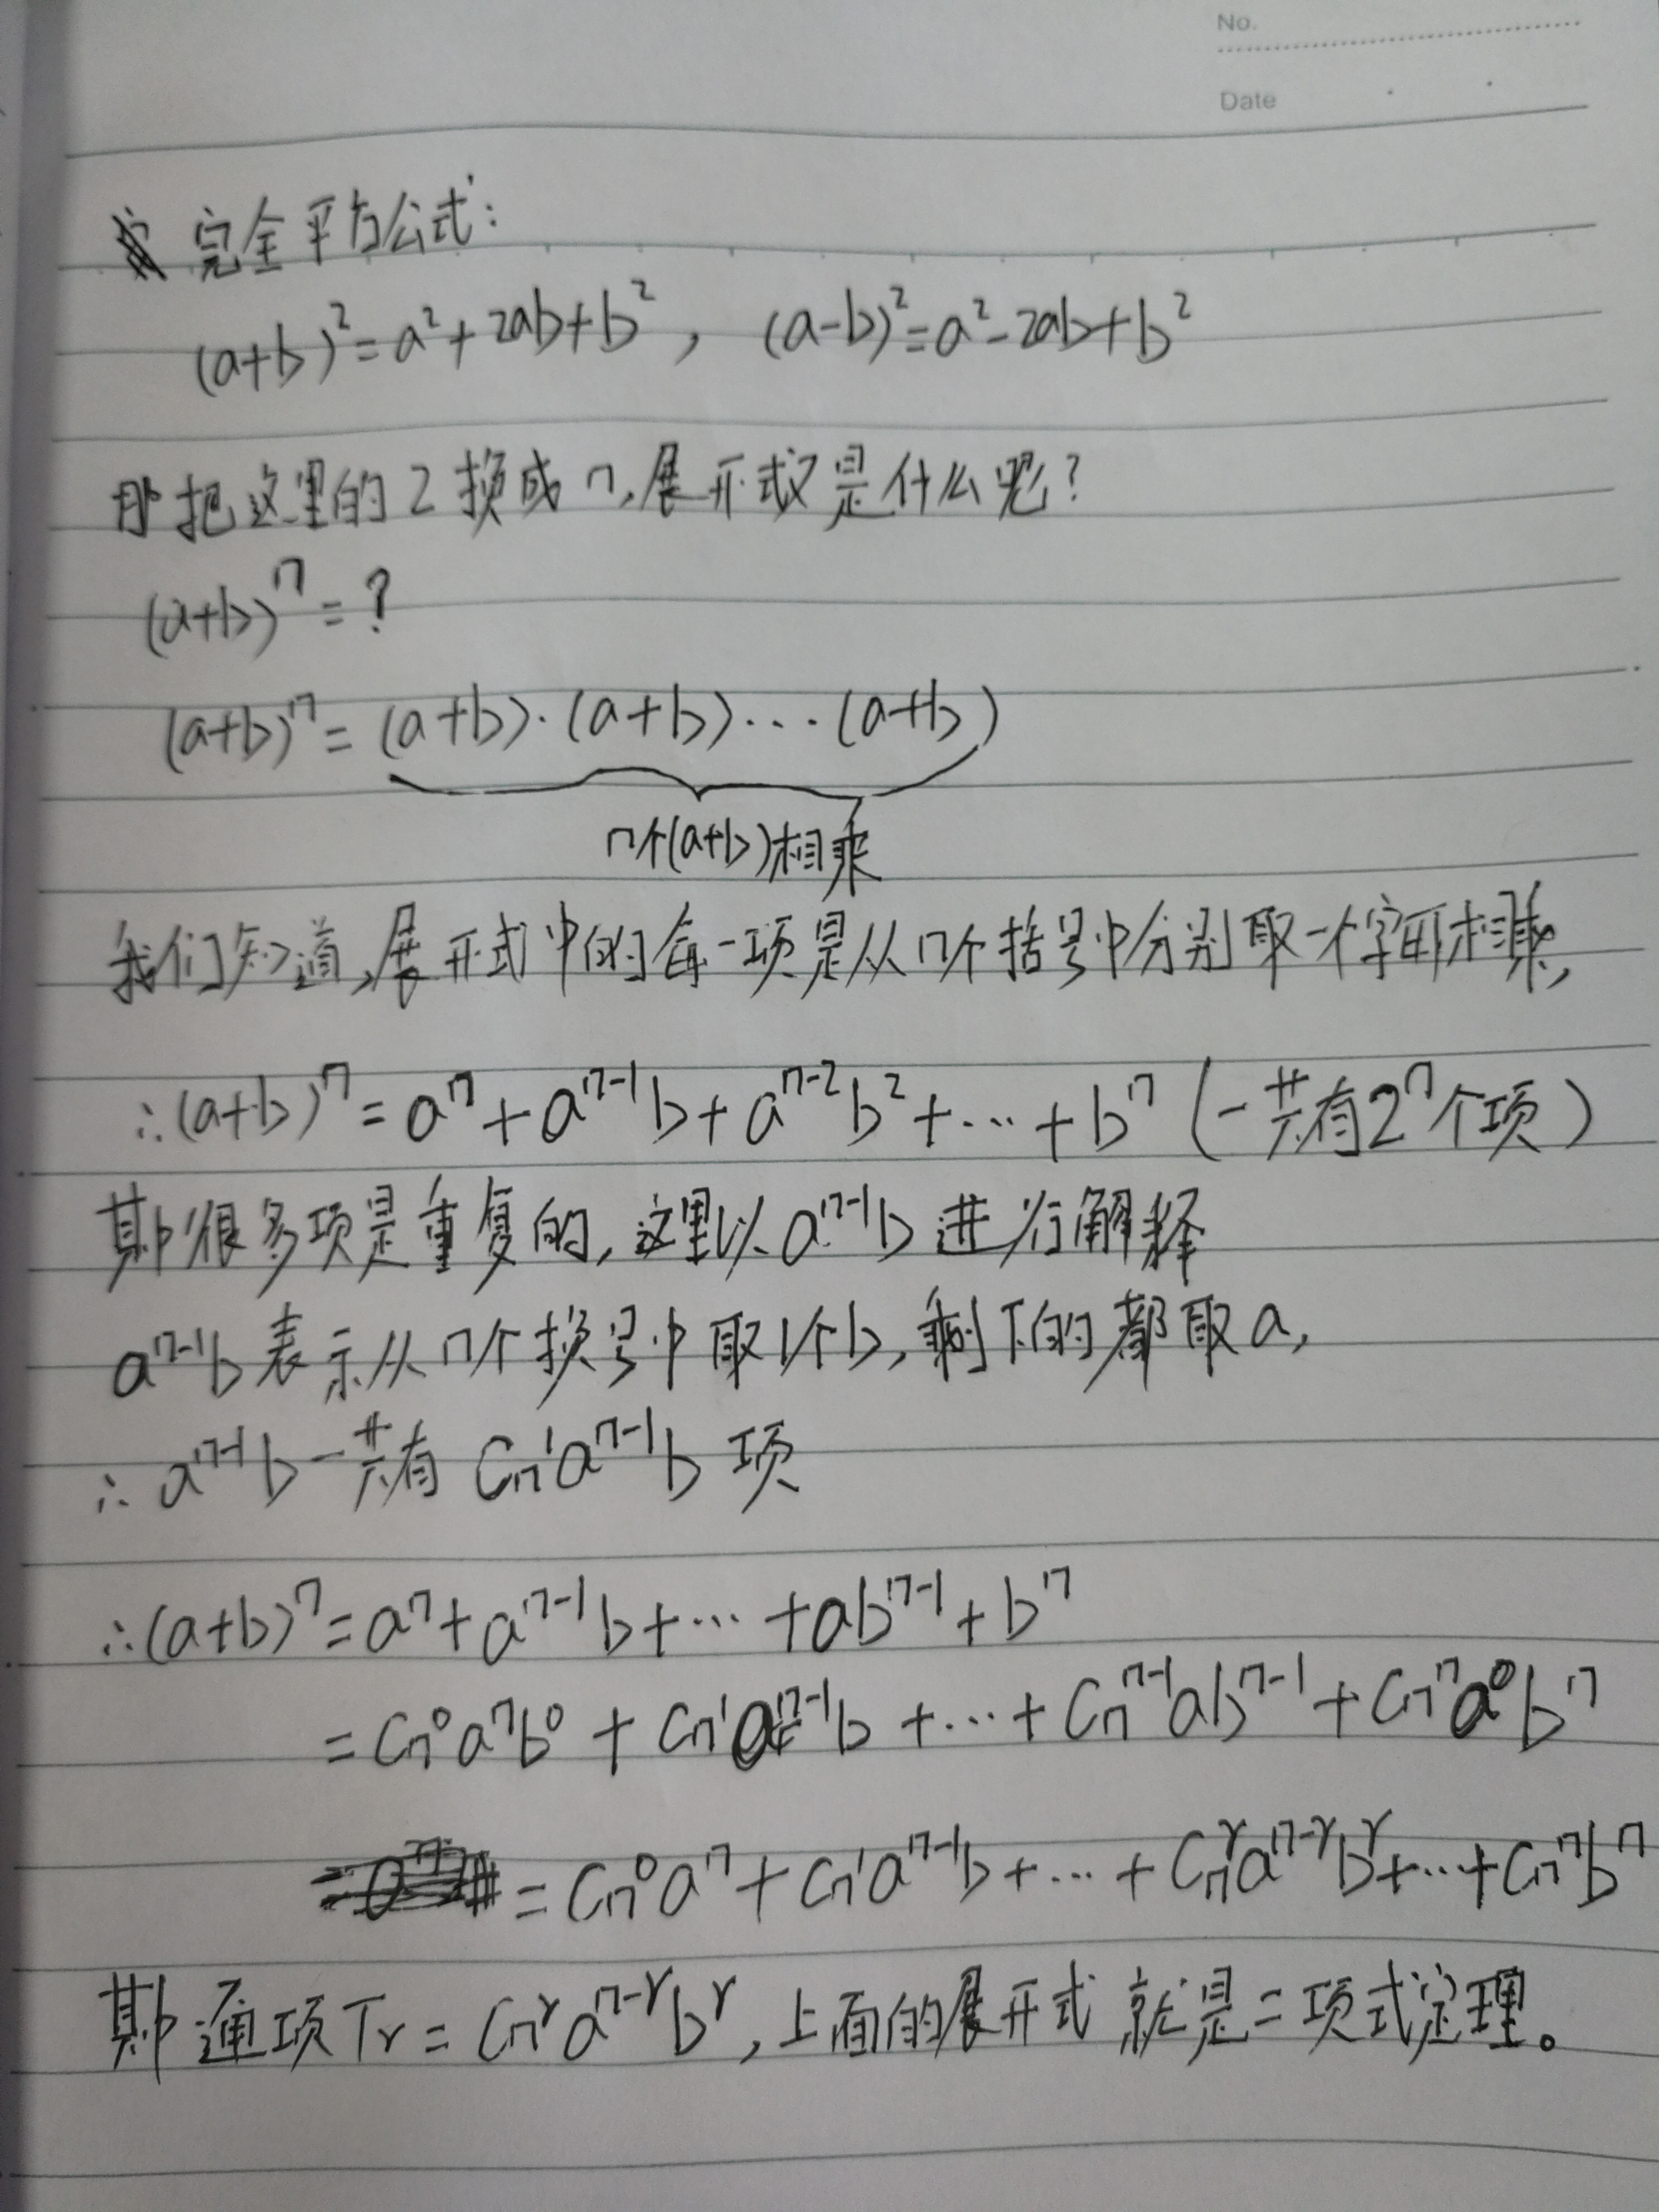 No.
Date
完全平方公式:
(a+b)²=a²+2ab+b², (a-b)²=a²-2ab+b²
那把这里的2换成n,展开式又是什么呢?
(a+b)ⁿ=?
(a+b)ⁿ=(a+b)·(a+b)···(a+b)
n个(a+b)相乘
我们知道,展开式中的每一项是从n个括号中分别取一个字母相乘,
∴(a+b)ⁿ=aⁿ+aⁿ⁻¹b+aⁿ⁻²b²+···+bⁿ(一共有2ⁿ个项)
其中很多项是重复的,这里以aⁿ⁻¹b进行解释
aⁿ⁻¹b表示从n个换号中取1个b,剩下的都取a,
∴aⁿ⁻¹b一共有Cₙ¹aⁿ⁻¹b项
∴(a+b)ⁿ=aⁿ+aⁿ⁻¹b+···+abⁿ⁻¹+bⁿ
=Cₙ⁰aⁿb⁰+Cₙ¹aⁿ⁻¹b+···+Cₙⁿ⁻¹abⁿ⁻¹+Cₙⁿa⁰bⁿ
=Cₙ⁰aⁿ+Cₙ¹aⁿ⁻¹b+···+Cₙʳaⁿ⁻ʳbʳ+···+Cₙⁿbⁿ
其中通项Tᵣ=Cₙʳaⁿ⁻ʳbʳ,上面的展开式就是二项式定理。